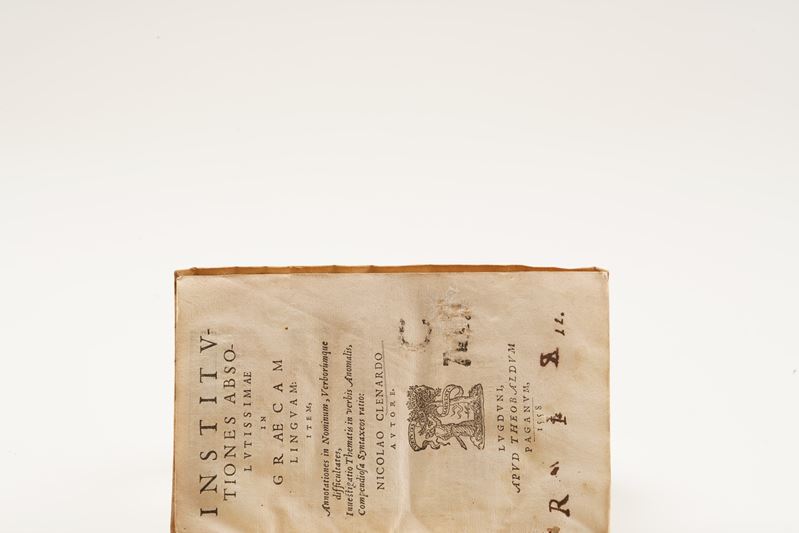 INSTITV-
TIONES ABSO-
LVTISSIMAE
IN
GRAECAM
LINGVAM:
ITEM,
Annotationes in Nominum, Verborúmque
difficultates,
Inuestigatio Thematis in verbis Anomalis,
Compendiosa Syntaxeos ratio:
NICOLAO CLENARDO
AVTORE.
LVGDVNI,
APVD THEOBALDVM
PAGANVM,
1558